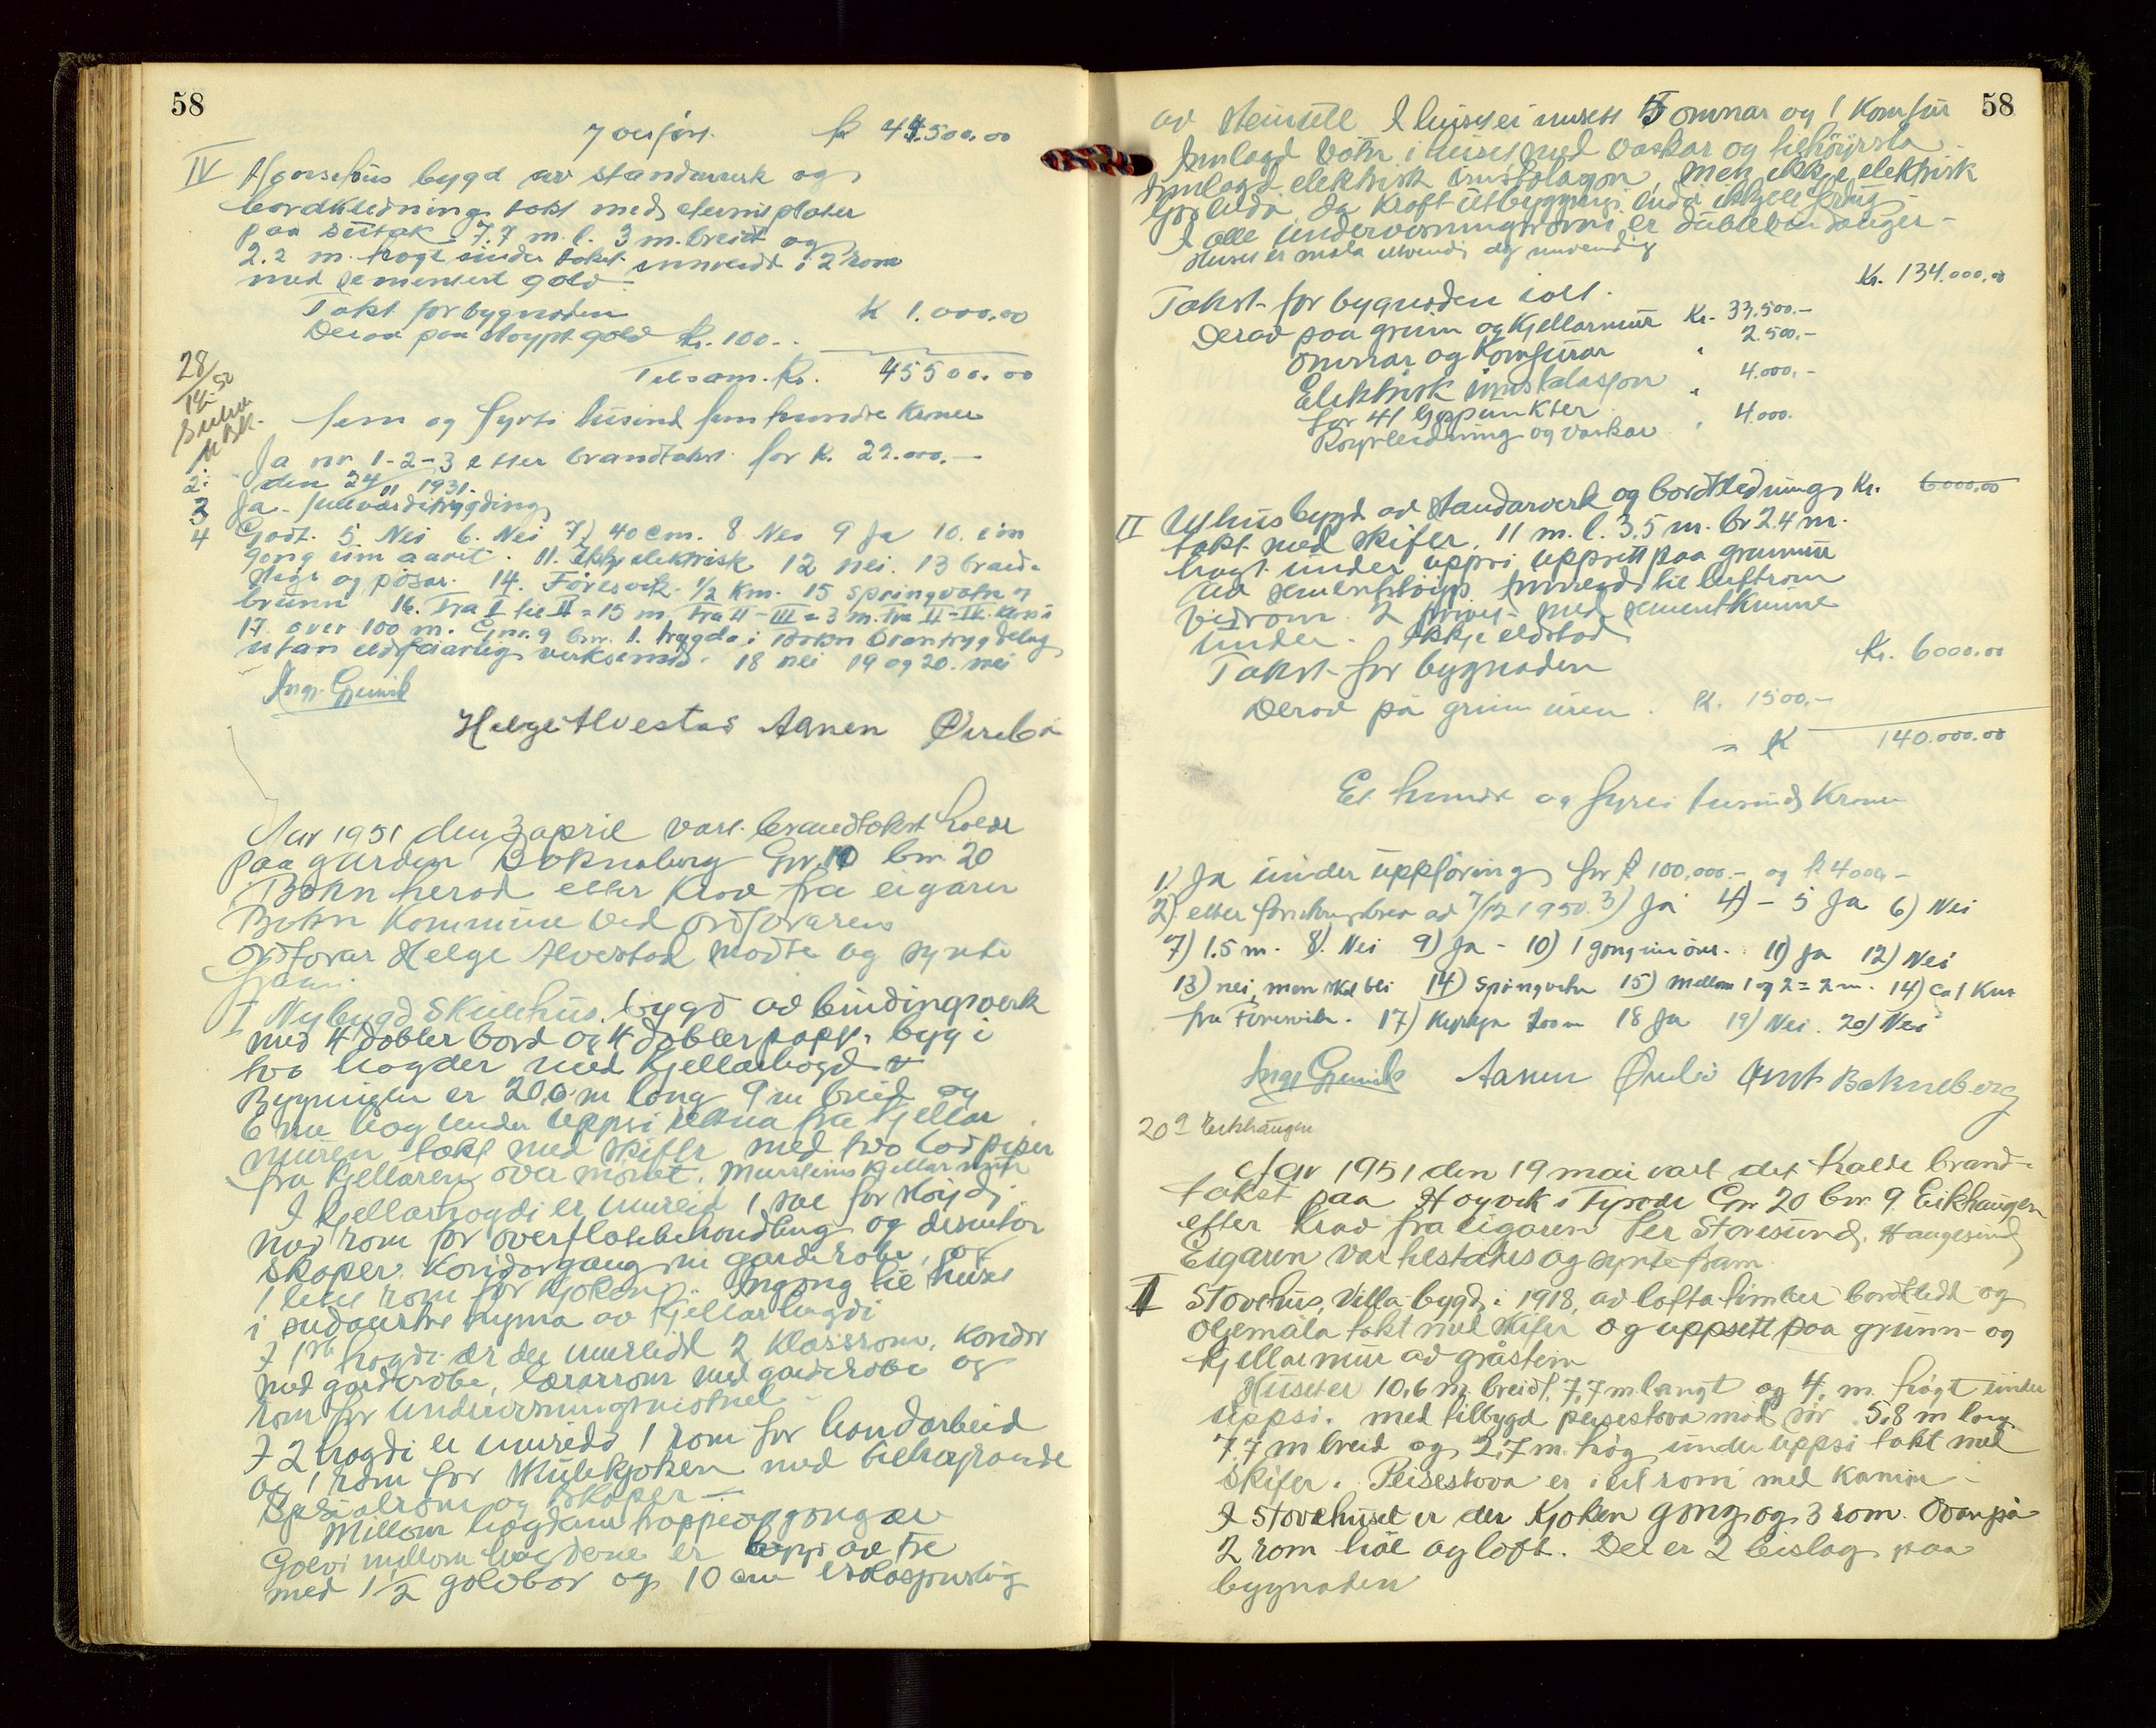 58
overført. kr 44.500.00
IV Hønsehus bygd av standarverk og
bordkledning takt med eternitplater
paa sutak 7.7 m. l. 3 m. breidt og
2.2 m. høgt under taket innreidt i 2 rom
med sementert golv
Takst for bygnaden K 1.000.00
Derav paa støypt golv Kr. 100..
Tilsam. Kr. 45500.00
28/12-50
fem og fyrti tusind fem hundre kroner
1. Ja nr 1-2-3 etter brandtakst for K. 22.000.-
2: den 24/11 1931.
3 Ja. fullverditrygding
4 Godt. 5 Nei 6. Nei 7) 40 cm. 8. Nei 9 Ja 10. ein
gong um aaret. 11. Ikkje elektrisk 12 nei. 13 brand-
stige og pøsar. 14. Føresvik. 1/2 Km. 15 springvatn og
brunn 16. Fra I til II = 15 m Fra II - III = 3 m. Fra II - IV
17. over 100 m. Gnr. 9 bnr. 1. trygda i Bokn Branntrygdelag
utan eldsfaarleg verksemd. 18 nei 19 og 20. nei
Helge Alvestad Aanen Øvrebø
Aar 1951 den 3 april vart brandtakst holdt
paa garden Boknaberg Gnr. 10 bnr 20
Bokn herad etter krav fra eigaren
Bokn Kommune ved ordføraren
Ordførar Helge Alvestad møtte og synte
fram.
I Nybygd Skulehus. bygd av bindingsverk
med 4 dobler bord og 4 dobler papp. bygg i
tvo høgder med kjellarhøgd
Bygningen er 20,0 m long 9 m breid og
6 m høg under uppsi rekna fra kjellar
muren takt med skifer med tvo lodpiper
fra kjellaren over mønet. Mursteins kjellarmur
I kjellarhøgdi er innreid 1 sal for sløyd
med rom for overflatebehandling og
skaper. Koridorgang m garderobe, og
1 lite rom for kjøken. Inngong til huset
i sudaustre hyrna av kjellarhøgdi
I 1ste høgdi er det innreidd 2 klasserom. Koridor
med garderobe, lærarrom med garderobe og
rom for undervisningsmateriel
I 2 høgdi er innreidd 1 rom for handarbeid
og 1 rom for skulekjøken med tilhøyrande
spesialrom og skaper -
Millom høgdane trappeopgongar
Golvi millom høgdene er bygg av tre
med 1 1/2 golvbord og 10 cm
58
av I huset er innsett 5 omnar og 1 Komfur
Innlagd vatn i huset med vaskar og tilhøyrsla
Innlagd elektrisk innstalasjon, men ikkje elektrisk
enda, da kraft utbyggingi enda ikkje er ferdig.
I alle undervisningsromi er
Huset er mala utvendig og innvendig
Takst for bygnaden Kr. 134.000.00
Derav paa grunn og Kjellarmur Kr. 33.500.-
Omnar og Komfurar " 2.500.-
Elektrisk innstalasjon " 4.000.-
for 41 lyspunkter
Røyrleidning og vaskar " 4.000.
II Uthus bygd av standarverk og bordkledning Kr. 6000.00
takt med skifer. 11 m. l. 3,5 m. br 2.4 m.
høgt under uppsi uppsett paa grunnmur
av sementstøyp. Innreidd til luftrom
vedrom 2 privet med sementkumme
under. Ikkje eldstad
Takst for bygnaden Kr. 6000.00
Derav på grunnmuren K. 1500.-
= K 140.000.00
Et hundre og fyrti tusind Kroner
1. Ja under uppføring for K 100,000.- og K 4000.-
2) etter forsikringsbrev av 7/12 1950. 3) Ja 4) - 5 Ja 6) Nei
7) 1.5 m. 8) Nei 9) Ja - 10) 1 gong um året. 11) Ja 12) Nei
13) nei, men skal bli 14) Springvatn 15) Mellom 1 og 2 = 2 m. 14) Ca 1 Km
fra Føresvik. 17) Kyrkja 200 m 18 Ja 19) Nei. 20) Nei
Aanen Øvrebø Knut Bokneberg
20/9 Eikhaugen
Aar 1951 den 19 mai vart det halde brand-
takst paa Høyvik i Tysvær Gnr 20 bnr. 9 Eikhaugen
efter krav fra eigaren Per Storesund, Haugesund
Eigaren var tilstades og synte fram
I Stovehus, Villa bygd i 1918, av lafta timber bordkledt og
oljemåla takt med skifer og uppsett paa grunn- og
kjellarmur av gråstein
Huset er 10,6 m. breidt, 7,7 m langt og 4, m. høgt under
uppsi. med tilbygd peisestova mod sør 5,8 m lang.
7.7 m breid og 2,7 m. høg under uppsi takt med
Skifer. Peisestova er i eit rom med kamin -
I Stovehuset er der Kjøken gong og 3 rom. Ovanpå
2 rom hall og loft. Det er 2 bislag paa
bygnaden